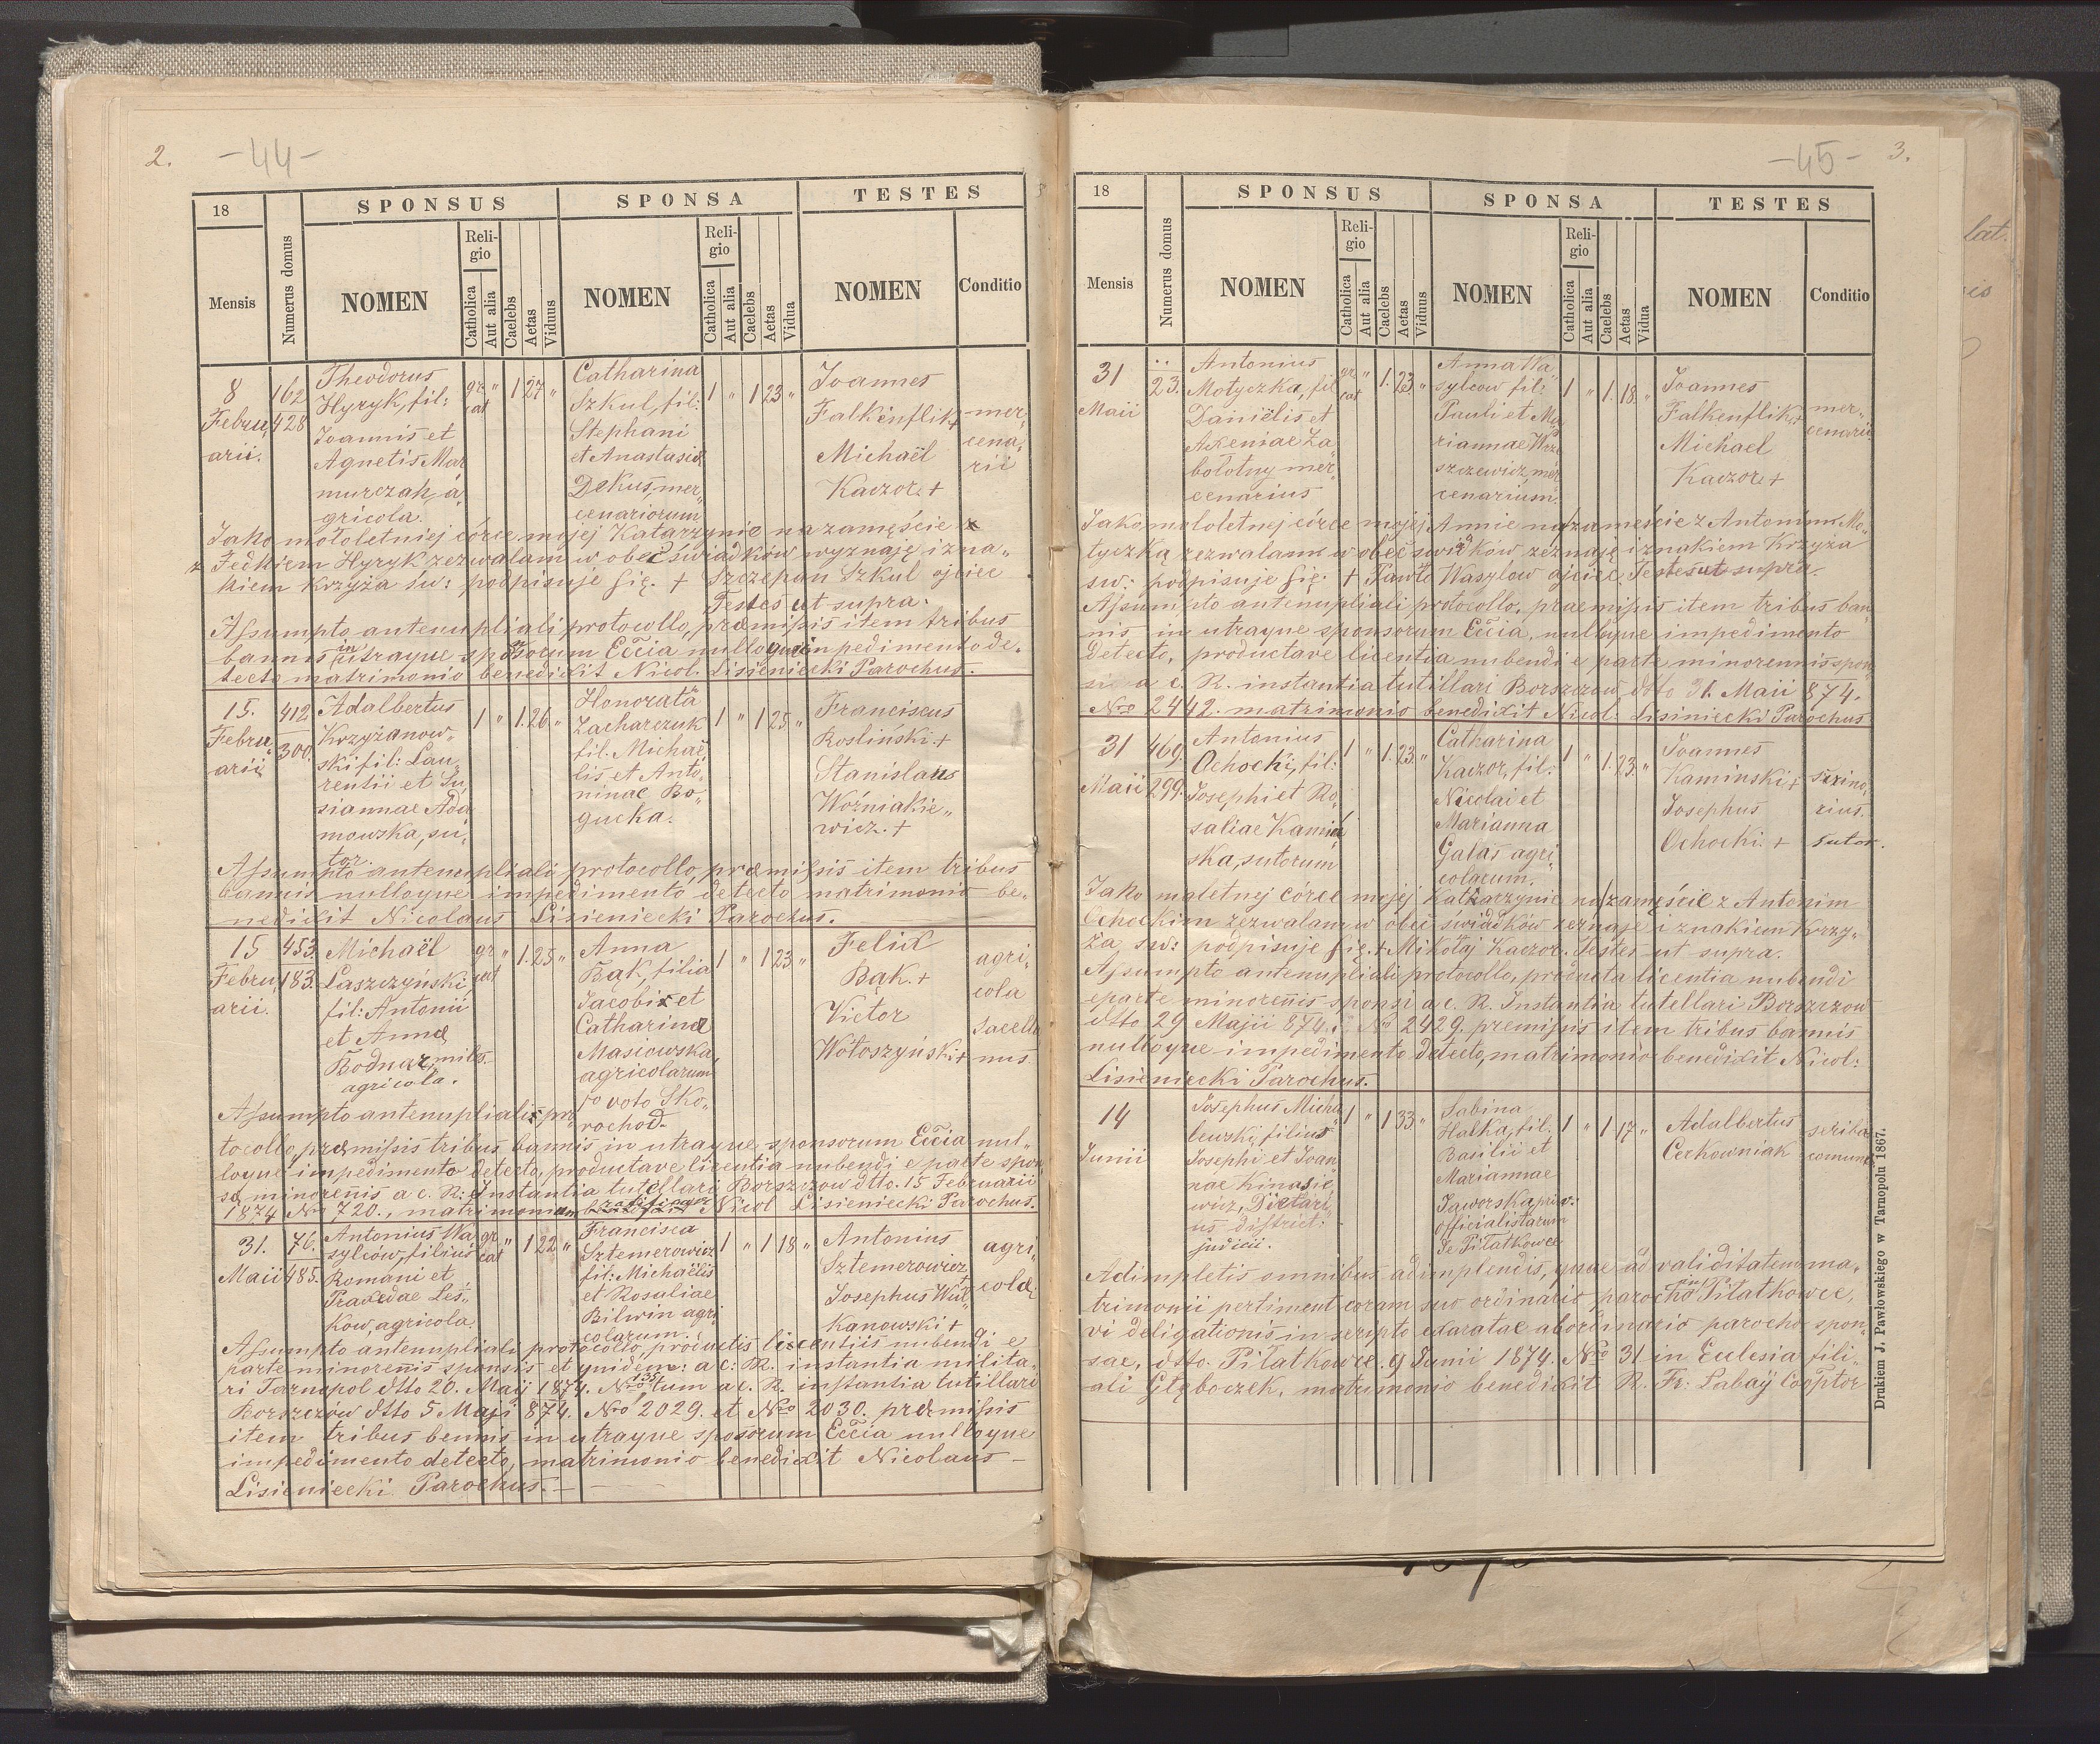 2.
-44-
18
SPONSUS
SPONSA
TESTES
Mensis
Numerus domus
NOMEN
Religio
Catholica
Aut alia
Caelebs
Aetas
Viduus
NOMEN
Religio
Catholica
Aut alia
Caelebs
Aetas
Vidua
NOMEN
Conditio
8
Febru„
arii.
162
428
Theodorus
Hyryk, fil:
Joannis et
Agnetis Mar
murczak, a„
gricola.
gr
cat
"
1
27
"
Catharina
Szkul, fil:
Stephani
et Anastasiae
Dekus, mer„
cenariorum
1
"
1
23
"
Joannes
Falkenflik+
Michaël
Kaczor. +
mer„
cena„
rii
Jako małoletniej córce mojej Katarzynie na zamęście z
z Fedkiem Hyryk zezwalam w obec świadków wyznaję i zna„
kiem krzyża św: podpisuje się. + Szczepan Szkul ojciec
Testes ut supra.
Assumpto antenupliali protocollo, præmissis item tribus
bannis in utraque sponsorum Eccia nulloque inpedimento de„
tecto matrimonio benedixit Nicol. Lisieniecki Parochus.
15.
Febru„
arii
412
300.
Adalbertus
Krzyżanow„
ski fil: Lau„
rentii et Su„
siannae Ada
mowska, su„
tor.
1
"
1.
26.
"
Honorata
Zacharczuk
fil: Michaë
lis et Anto„
ninae Bo„
gucka.
1
"
1
25
"
Franciscus
Roslinski. +
Stanislaus
Woźniakie„
wicz. +
Assumpto antenupliali protocollo, præmissis item tribus
bannis nulloque impedimento detecto matrimonio be„
nedixit Nicolaus Lisieniecki Parochus.
15
Febru„
arii.
453.
183.
Michaël
Laszczyński
fil: Antonii
et Annæ
Bodnar, miles.
agricola.
gr
cat
"
1.
25
"
Anna
Bąk, filia
Jacobi et
Catharinæ
Masiowska,
agricolarum
1o voto Sko„
rochod.
1
"
1
23
"
Felix
Bąk. +
Victor
Wołoszyński+
agri„
cola
sacella
nus.
Assumpto antenupliali pro„
tocollo, præmissis tribus bannis in utraque sponsorum Eccia nul„
loque impedimento detecto, productave licentia nubendi e parte spon„
sæ minorenis a c. R: Instantia tutellari Borszczow dtto. 15 Februarii
1874 No 720., matrimonium Nicol Lisieniecki Parochus.
31.
Maii
76.
485.
Antonius Wa
sylców, filius
Romani et
Praxedae Leś„
kow, agricola.
gr
cat
"
1
22
"
Francisca
Sztemerowicz
fil: Michaëlis
et Rosaliae
Bilwin agri„
colarum.
1
"
1
18
"
Antonius
Sztemerowicz
Josephus Wul„
kanowski +
agri„
colæ
Assumpto antenupliali protocollo, productis licentiis nubendi e
parte minorenis sponsis et quidem: a c: R. instantia milita„
ri Tarnopol dtto 20. Maij 1874. No 135 tum a c. R. instantia tutillari
Borszczów dtto 5 Maji 874. No 2029. et No 2030. præmissis
item tribus bennis in utraque sposorum Eccia nulloque
impedimento detecto, matrimonio benedixit Nicolaus —
Lisieniecki Parochus. —
-45-
3.
18
SPONSUS
SPONSA
TESTES
Mensis
Numerus domus
NOMEN
Religio
Catholica
Aut alia
Caelebs
Aetas
Viduus
NOMEN
Religio
Catholica
Aut alia
Caelebs
Aetas
Vidua
NOMEN
Conditio
31
Maii
23.
Antonius
Motyczka, fil
Daniëlis et
Axeniae Za„
bolotny mer„
cenarius
gr
cat
"
1.
23.
"
Anna Wa„
sylcow fil:
Pauli et Ma„
riannae
mer„
cenarium.
1
"
1.
18.
"
Joannes
Falkenflik+
Michael
Kaczor. +
mer„
cenarii
Jako małoletnej córce mojej Annie na zamęście z Antonim Mo„
tyczką zezwalam w obec świadków zeznaję i znakiem Krzyża
sw: podpisuje się. + Paweł Wasylow ojciec, Testes ut supra.
Assumpto antenupliali protocollo, præmissis item tribus ban„
nis in utraque sponsorum Eccia, nulloque impedimento
detecto, productave licentia nubendi e parte minorennis spon„
si a c. R. instantia tutillari Borszczow dtto 31. Maii 874.
No 2442. matrimonio benedixit Nicol: Lisiniecki Parochus
31
Maii
469.
299.
Antonius
Ochocki, fil:
Josephi et Ro„
saliae Kamiń
ska, sutorum
1
"
1.
23.
"
Catharina
Kaczor, fil:
Nicolai et
Marianna
Galas agri„
colarum.
1
"
1.
23.
"
Joannes
Kaminski+
Josephus
Ochocki. +
scrino„
rius.
sutor.
Jako maletnej córce mojej Katarzynie na zamęście z Antonim
Ochockim zezwalam w obec świadków zeznaje i znakiem Krzy„
ża sw: podpisuje się. + Mikołaj Kaczor. Testes ut supra.
Assumpto antenupliali protocollo, producta licentia nubendi
eparte minorennis sponsi a c. R. Instantia tutellari Borszczow
dtto 29 Majii 874. No 2429. premissis item tribus bannis
nulloque impedimento detecto, matrimonio benedixit Nicol:
Lisieniecki Parochus.
14
Junii
Josephus Micha
lewski, filius
Josephi et Joan
nae Kinasie
wicz, Dietari„
us district:
judicii.
1
"
1
33
"
Sabina
Halka, fil.
Basilii et
Mariannae
Jaworska, priv:
officialistarum
de Piłatkowce
1
"
1
17
"
Adalbertus
Cerkowniak
scriba
comunit
Adimpletis omnibus adimplendis, quae ad validitatem ma„
trimonii pertiment coram suo ordinario parocho Piłatkowce,
vi deligationis in scripto exaratae ab ordinario parocho spon„
sae, dtto. Piłatkowce. 9 Junii 1874. No 31 in Eculesia fili„
ali Głęboczek, matrimonio benedixit R. Fr: Labaÿ Cooptor
Drukiem J. Pawłowskiego w Tarnopolu 1867.
lat.